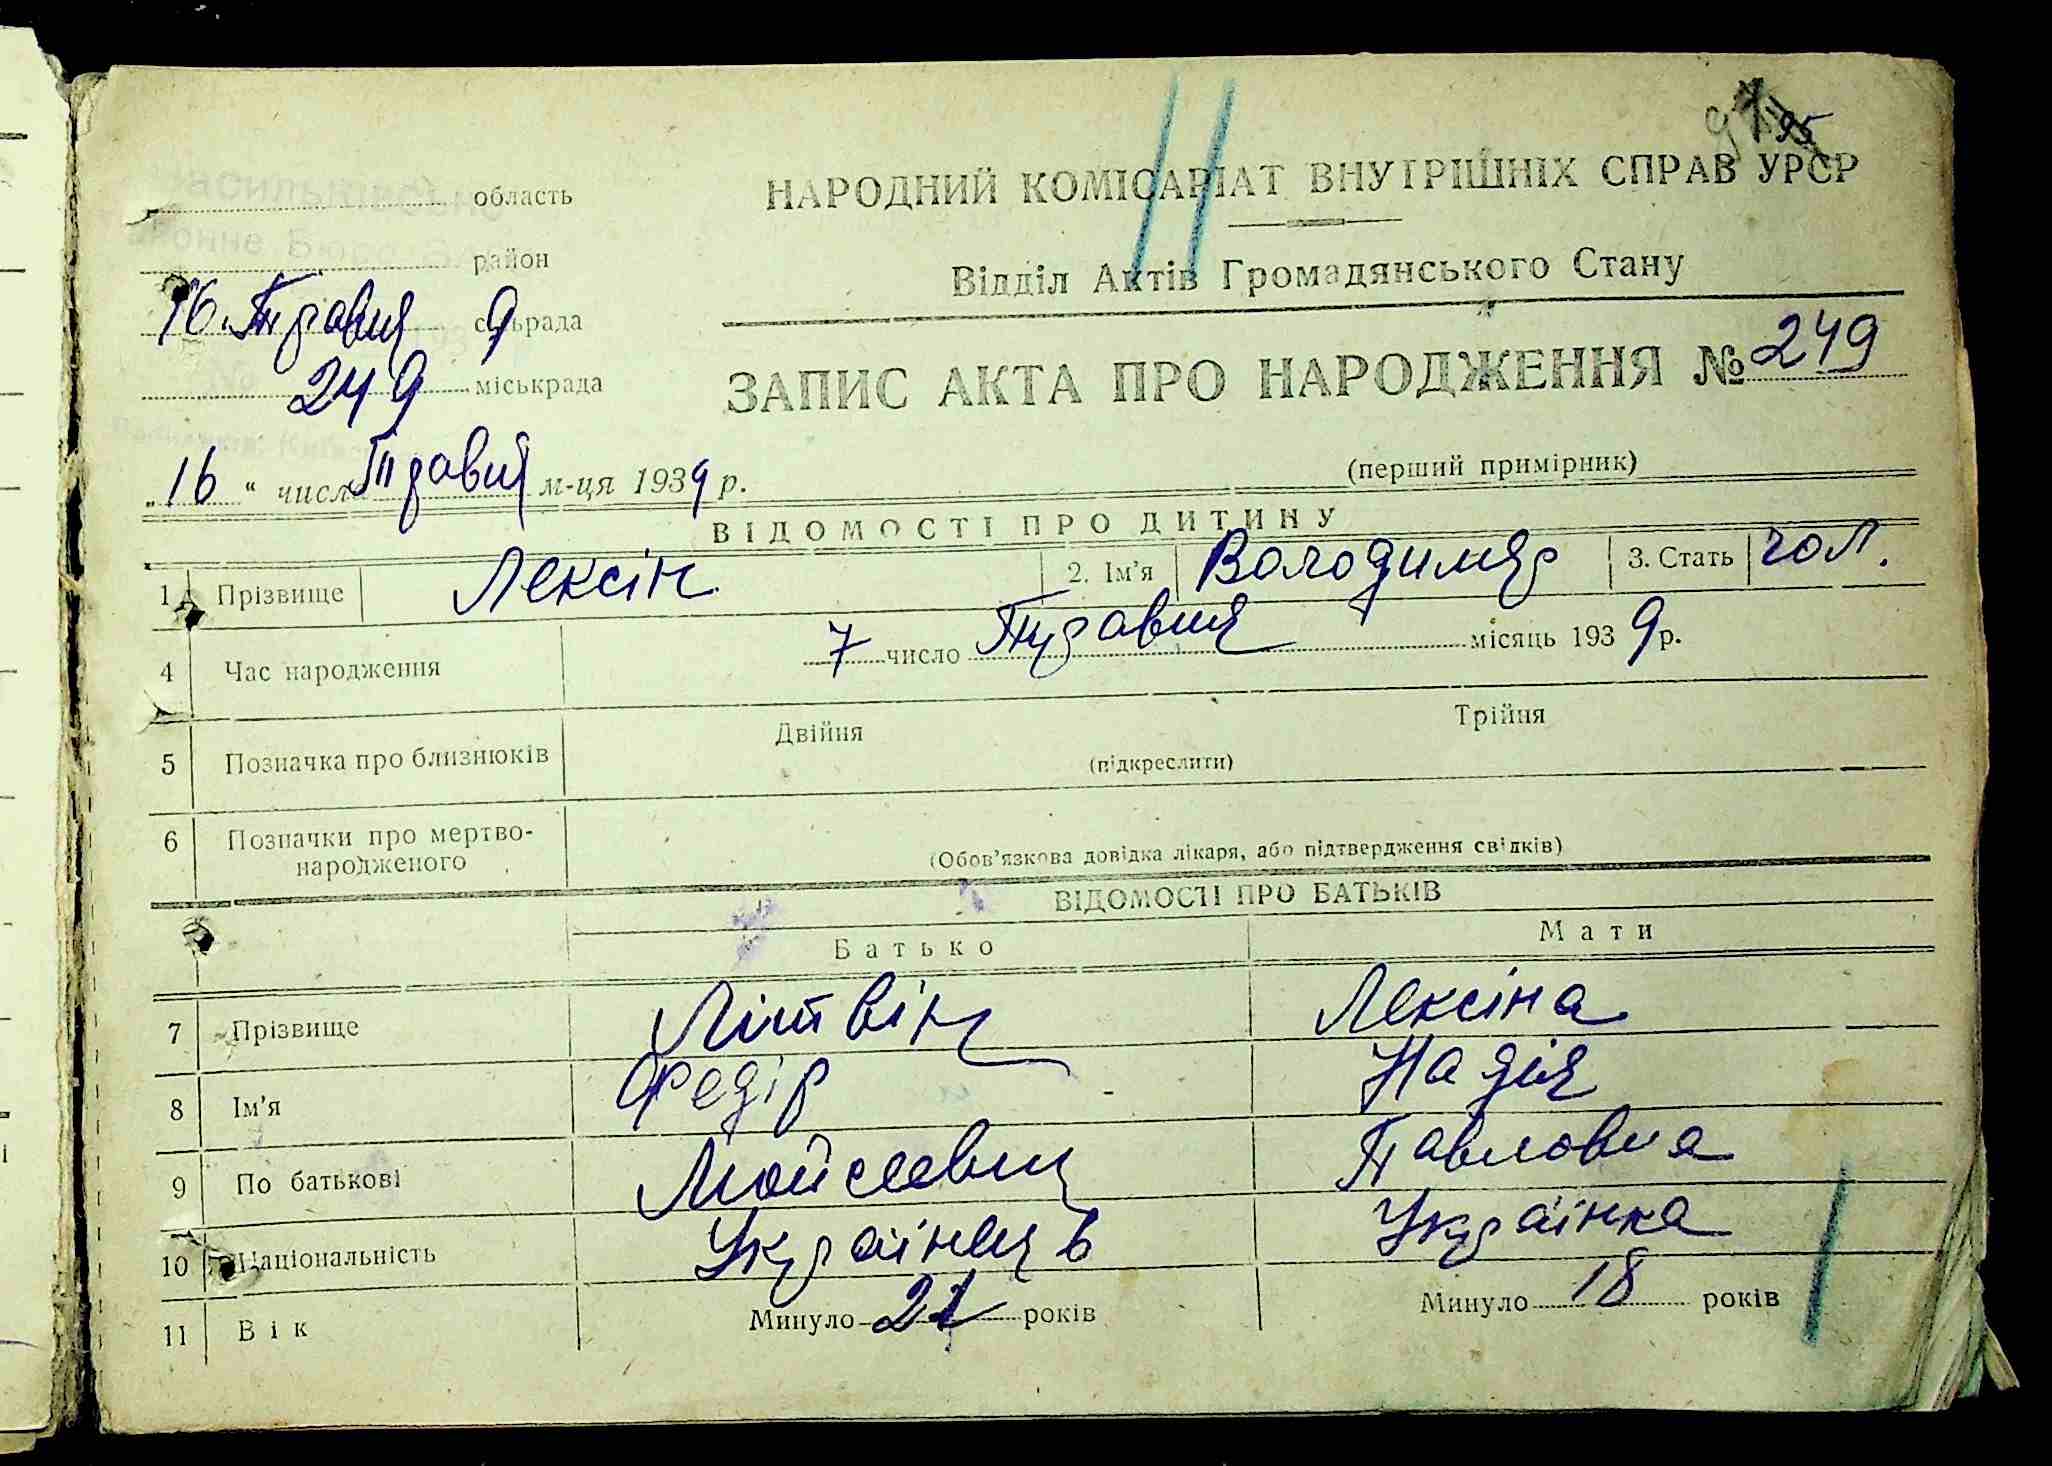 95
область
НАРОДНИЙ КОМІСАРІАТ ВНУТРІШНІХ СПРАВ УРСР
район
Відділ Актів Громадянського Стану
16. Травня 9 сільрада
249 міськрада
ЗАПИС АКТА ПРО НАРОДЖЕННЯ № 249
(перший примірник)
„16“ числа Травня м-ця 1939 р.
ВІДОМОСТІ ПРО ДИТИНУ
1 Прізвище Лексін 2. Ім'я Володимир 3. Стать чол.
4 Час народження 7 число Травня місяць 1939 р.
5 Позначка про близнюків Двійня Трійня
(підкреслити)
6 Позначки про мертво-
народженого (Обов'язкова довідка лікаря, або підтвердження свідків)
ВІДОМОСТІ ПРО БАТЬКІВ
Батько Мати
7 Прізвище Літвін Лексіна
8 Ім'я Федір Надія
9 По батькові Мойсеевич Павловна
10 Національність Українець Українка
11 Вік Минуло 21 років Минуло 18 років